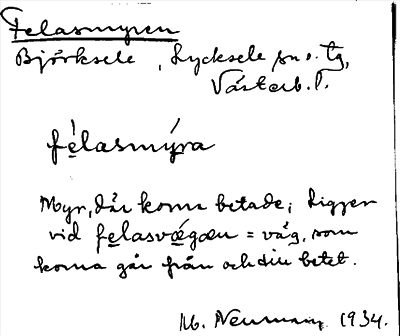 Felasmyren
Björksele, Lycksele sn o. tg,
Västerb. l.
félasmýra
Myr, där korna betade; ligger
vid felasvǽgæn = väg, som
korna går från och till betet.
M. Neuman, 1934.